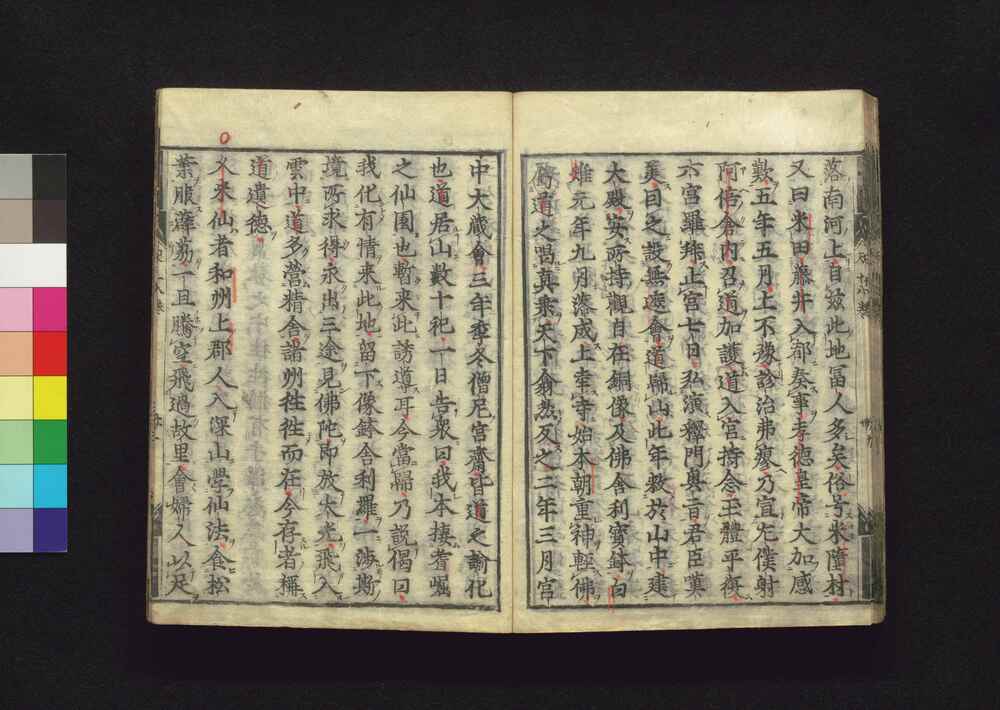 落南河上自玆此地冨人多矣俗号米墮村
又曰米田藤井入都奏事孝德皇帝大加感
歎五年五月上不豫診治弗廖乃宣左僕射
阿倍倉内召道加護道入宮持念玉體平復
六宮羅拜止宮七日弘演釋門奥旨君臣
美目之設無遮會道歸山此年敕於山中建
大殿安所持觀自在銅像及佛舍利寶鉢白
雉元年九月落成上幸寺始本朝重神輕佛
道之唱真乘天下翕然及之二年三月宮
中大藏會三年季冬僧尼宮齋皆道之諭化
也道居山數十祀一日告衆曰我本棲耆崛
之仙園也暫來此誘導耳今當歸乃說偈曰
我化有情來此地留下像鉢舍利羅一渉斯
境所求得永出三途見佛陀即放大光飛入
雲中道多營精舍諸州徃徃而在今存者稱
道遺德
久米仙者和州上郡人入深山學仙法食松
葉服薜荔一旦騰空飛過故里會婦人以足